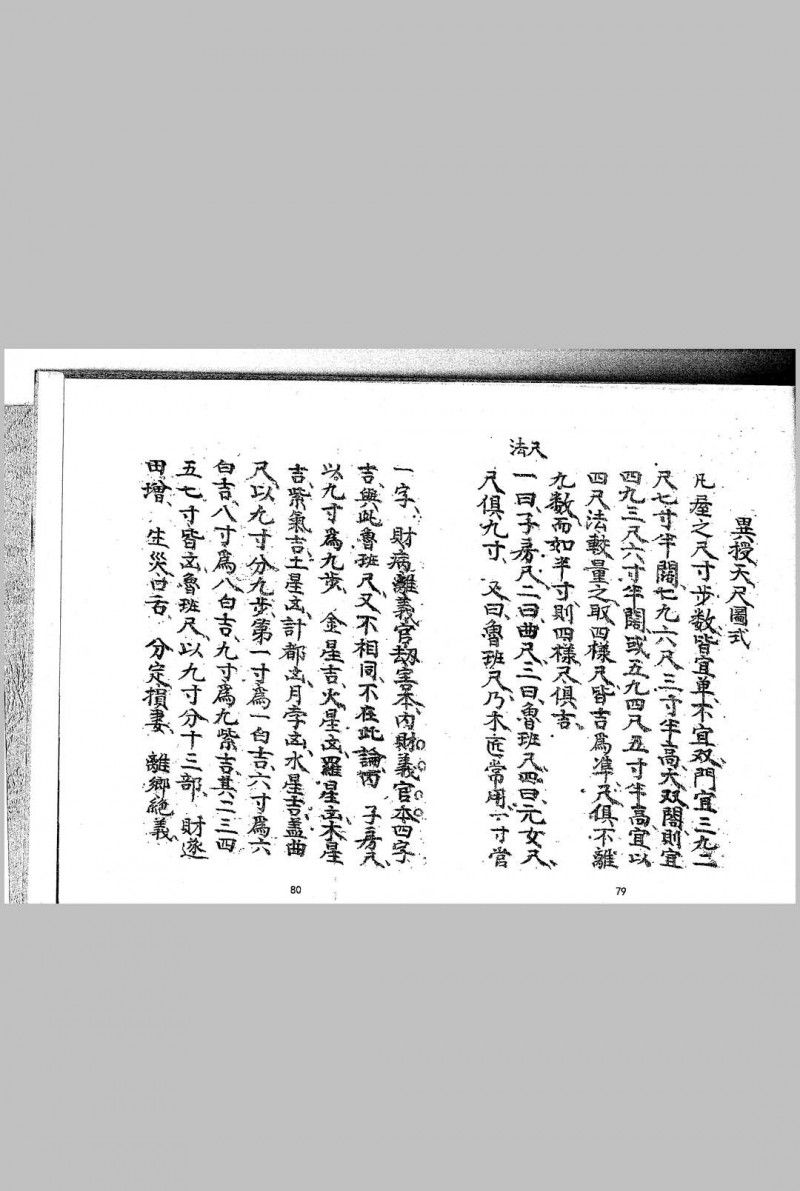 異授天尺圖式
凡屋之尺寸步数皆宜单不宜双門宜三九二
尺七寸半闊七九六尺三寸半高大双閤則宜
四九三尺六寸半闊或五九四尺五寸半高宜以
四尺法較量之取四樣尺皆吉為準尺俱不離
九数而如半寸則四樣尺俱吉
尺法
一曰子房尺二曰曲尺三曰魯班尺四曰元女尺
尺俱九寸又曰魯班尺乃木匠常用一寸當
79
一字財病離義官劫害本内財義官本四字
吉與此魯班尺又不相同不在此論 子房尺
以九寸為九步金星吉火星凶羅星凶木星
吉紫氣吉土星凶計都凶月孛凶水星吉盖曲
尺以九寸分九步第一寸為一白吉六寸為六
白吉八寸為八白吉九寸為九紫吉其二三四
五七寸皆凶魯班尺以九寸分十三部財遂
田增 生災口舌 分定損妻 離鄉絕義
80